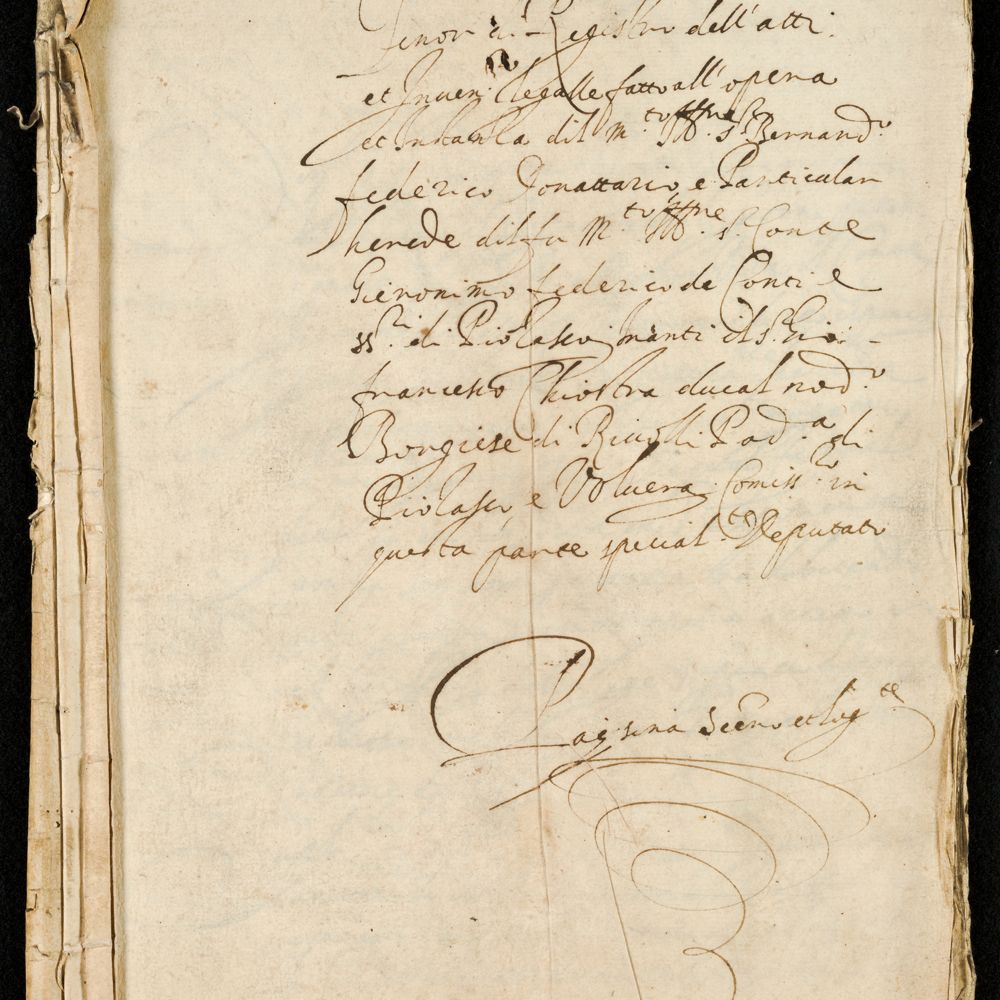 Tenor di Registro dell'atti
et Inven. legalle fatto all' opera
et Instanza dil m.to Ill.re s.r Bernard.o
federico Donattario, e Particular
herede dil fu M.to Ill.re s.r Conte
Gieronimo federico de Conti e
ss.ri di Piolasco inanti il s.r Gio:
francesco Chiostra ducal nod.o
Borgiese di Rivolli Pod.a di
Piolasco, e Volvera Comiss.ro in
questa parte special.te Deputato
et log.te